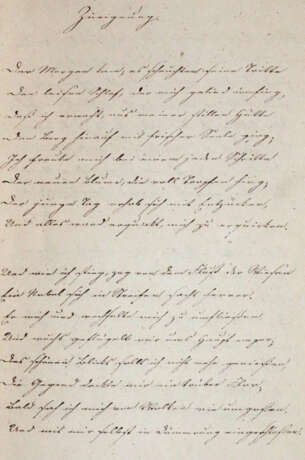 Zueignung.
Der Morgen kam, es scheuchten seine Tritte
Den leisen Schlaf, der mich gelind umfing,
Daß ich erwacht, aus meiner stillen Hütte
Den Berg hinauf mit frischer Seele ging;
Ich freute mich bei einem jeden Schritte
Der neuen Blume, die voll Tropfen hing;
Der junge Tag erhob sich mit Entzücken,
Und alles ward erquickt, mich zu erquicken.
Und wie ich stieg, zog von dem Fluß der Wiesen
Ein Nebel sich in Streifen sacht hervor.
Er wich und wechselte mich zu umfließen
Und wuchs geflügelt mir ums Haupt empor;
Des schönen Blicks sollt ich nicht mehr genießen
Die Gegend deckte mir ein trüber Flor,
Bald sah ich mich von Wolken wie umgossen
Und mit mir selbst in Dämmrung eingeschlossen.